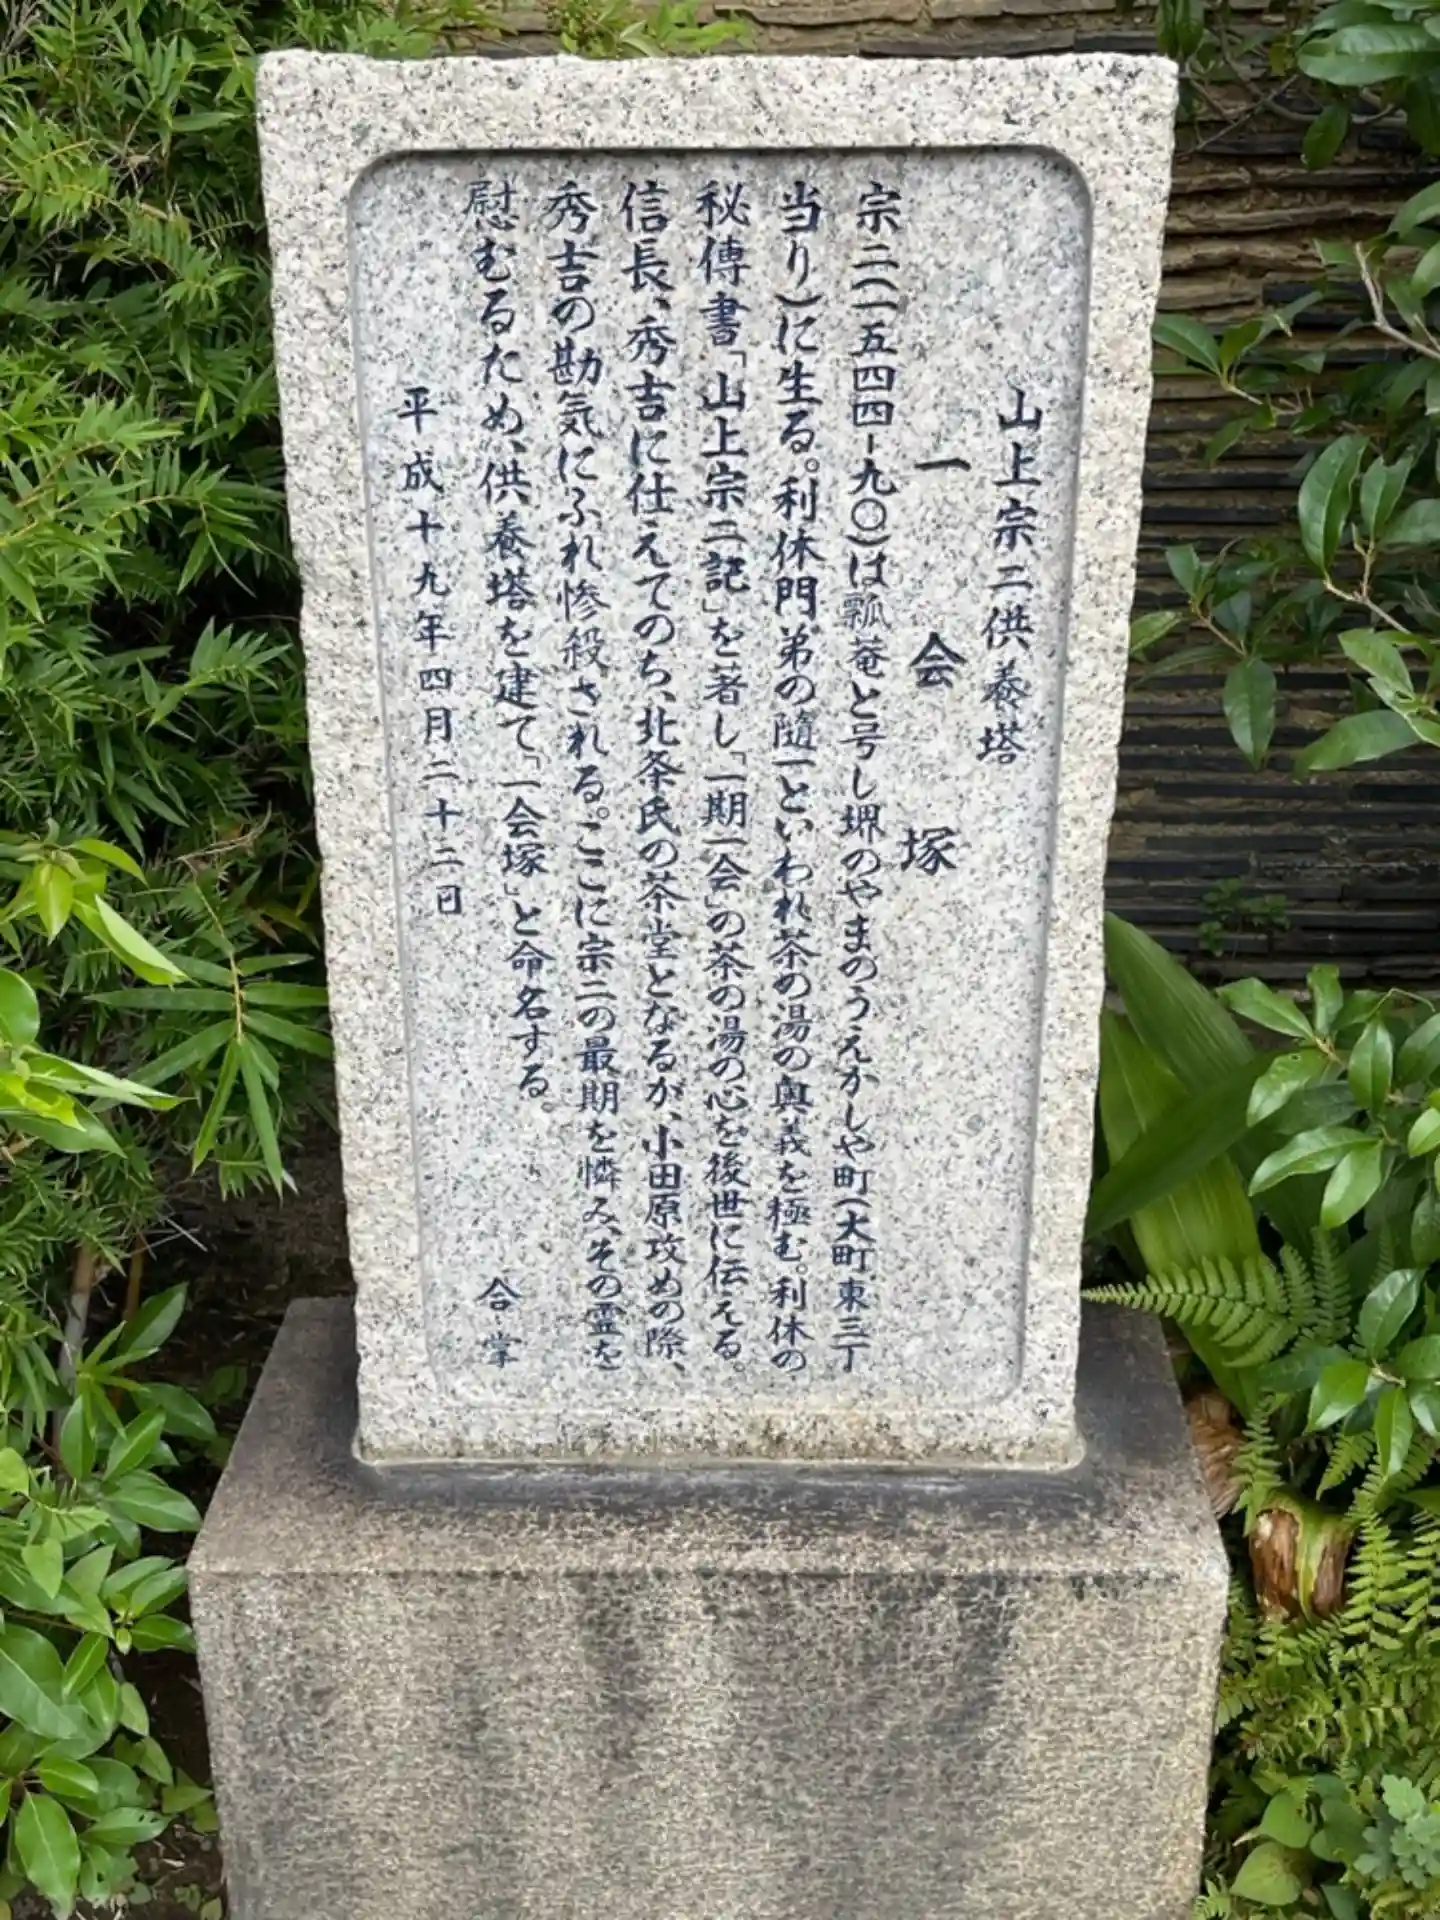 山上宗二供養塔
一会塚
宗二(一五四四-九〇)は瓢菴と号し堺のやまのうえかしや町(大町東三丁
当り)に生る。利休門弟の随一といわれ茶の湯の奥義を極む。利休の
秘傳書「山上宗二記」を著し「一期一会」の茶の湯の心を後世に伝える。
信長、秀吉に仕えてのち、北条氏の茶堂となるが、小田原攻めの際、
秀吉の勘気にふれ惨殺される。ここに宗二の最期を憐み、その霊を
慰むるため、供養塔を建て「一会塚」と命名する。
合掌
平成十九年四月二十二日